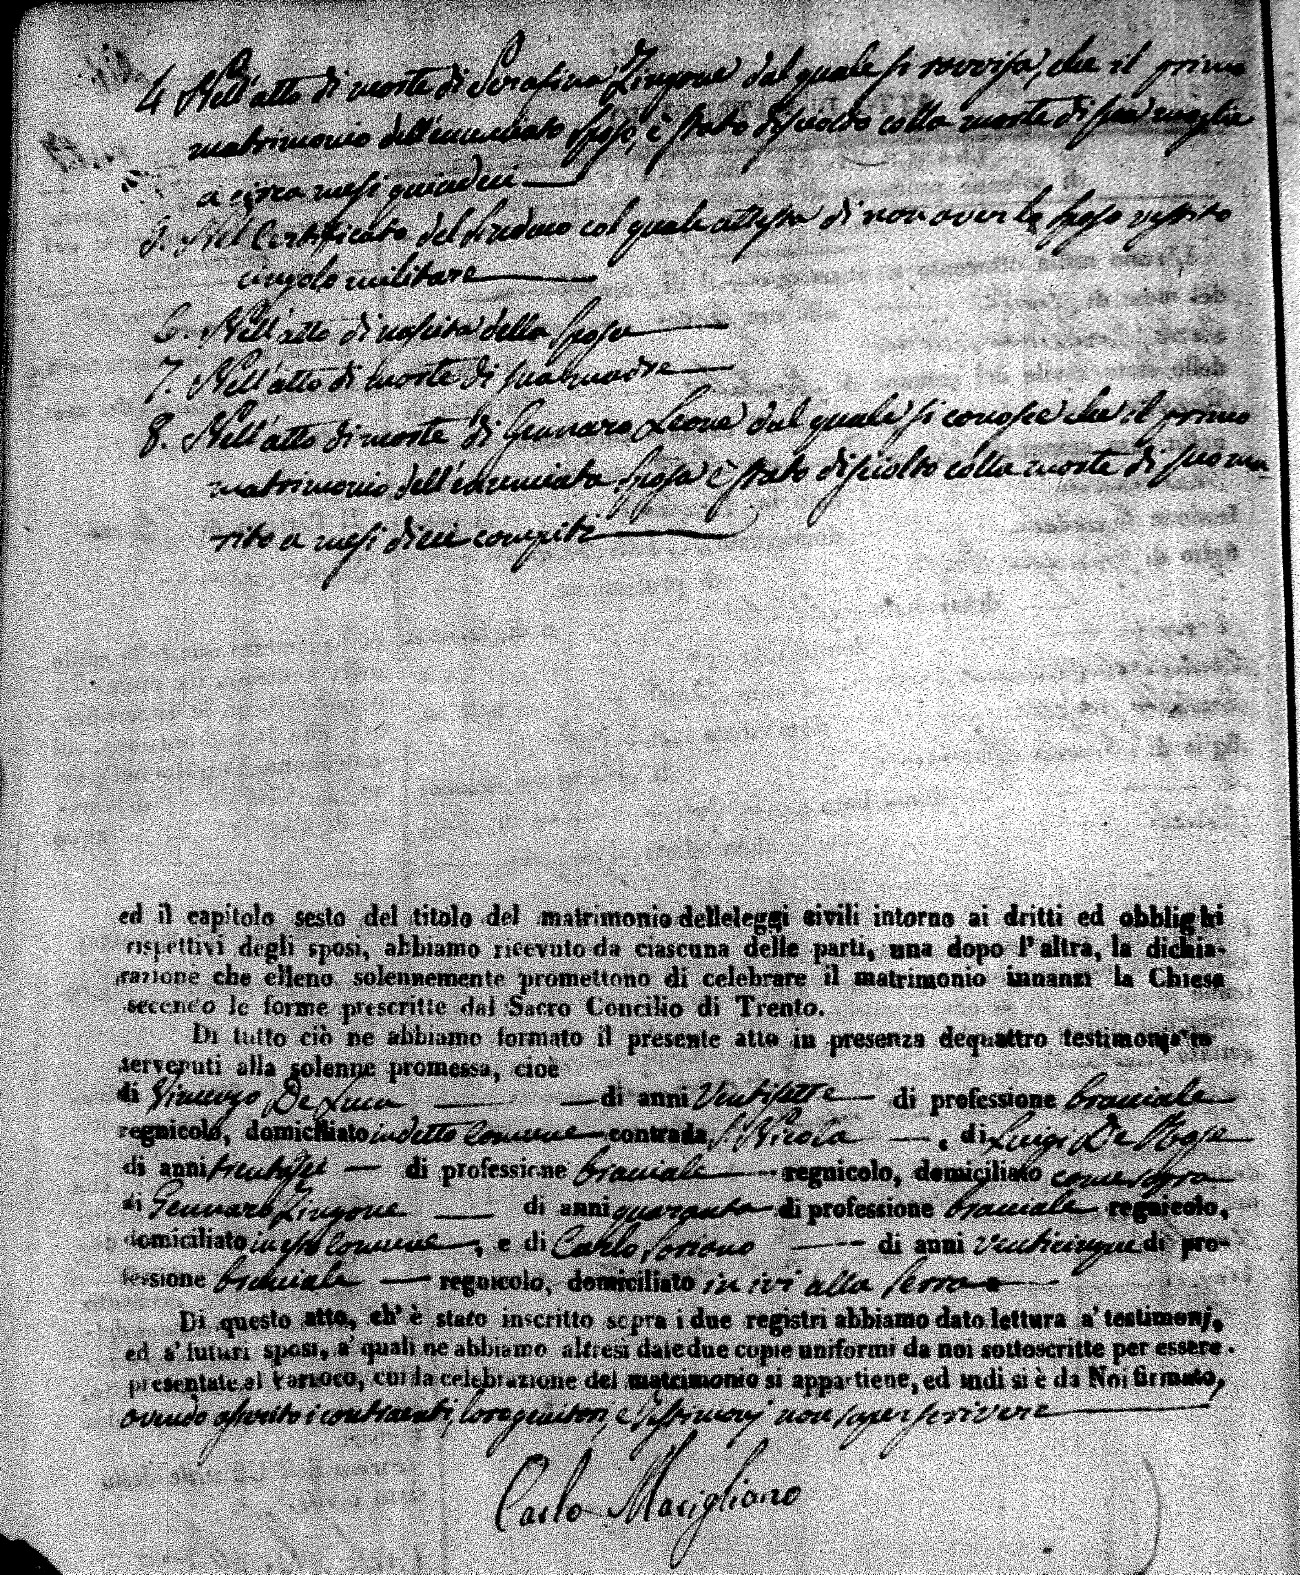 4. Nell'atto di morte di Serafina Zingone dal quale si rovvisa, che il primo
matrimonio dell'enunciato sposo, è stato disciolto colla morte di sua moglie
a circa mesi quindeci
5. Nel Certificato del Sindaco col quale attesta di non aver lo sposo vestito
cingolo militare
6. Nell'atto di nascita della sposa
7. Nell'atto di morte di sua madre
8. Nell'atto di morte di Gennaro Leone dal quale si conosce che il primo
matrimonio dell'enunciata sposa è stato disciolto colla morte di suo ma-
rito a mesi dieci compiti
ed il capitolo sesto del titolo del matrimonio delleleggi civili intorno ai dritti ed obblighi
rispettivi degli sposi, abbiamo ricevuto da ciascuna delle parti, una dopo l'altra, la dichia-
razione che elleno solennemente promettono di celebrare il matrimonio innanzi la Chiesa
secondo le forme prescritte dal Sacro Concilio di Trento.
Di tutto ciò ne abbiamo formato il presente atto in presenza dequattro testimonj in
tervenuti alla solenne promessa, cioè
di Vincenzo De Luca di anni Ventisette di professione bracciale
regnicolo, domiciliato in detto Comune contrada S. Nicola, di Luigi De Rose
di anni trentasei di professione bracciale regnicolo, domiciliato come sopra
di Gennaro Zingone di anni quaranta di professione bracciale regnicolo,
domiciliato in esso Comune, e di Carlo Soriano di anni venticinque di pro-
fessione bracciale regnicolo, domiciliato in ivi alla Serra
Di questo atto, ch'è stato inscritto sopra i due registri abbiamo dato lettura a' testimonj,
ed a' futuri sposi, a' quali ne abbiamo altresì date due copie uniformi da noi sottoscritte per essere
presentate al Parroco, cui la celebrazione del matrimonio si appartiene, ed indi si è da Noi firmato,
avendo asserito i contraenti, loro genitori, e testimonj non saper scrivere
Carlo Macigliano